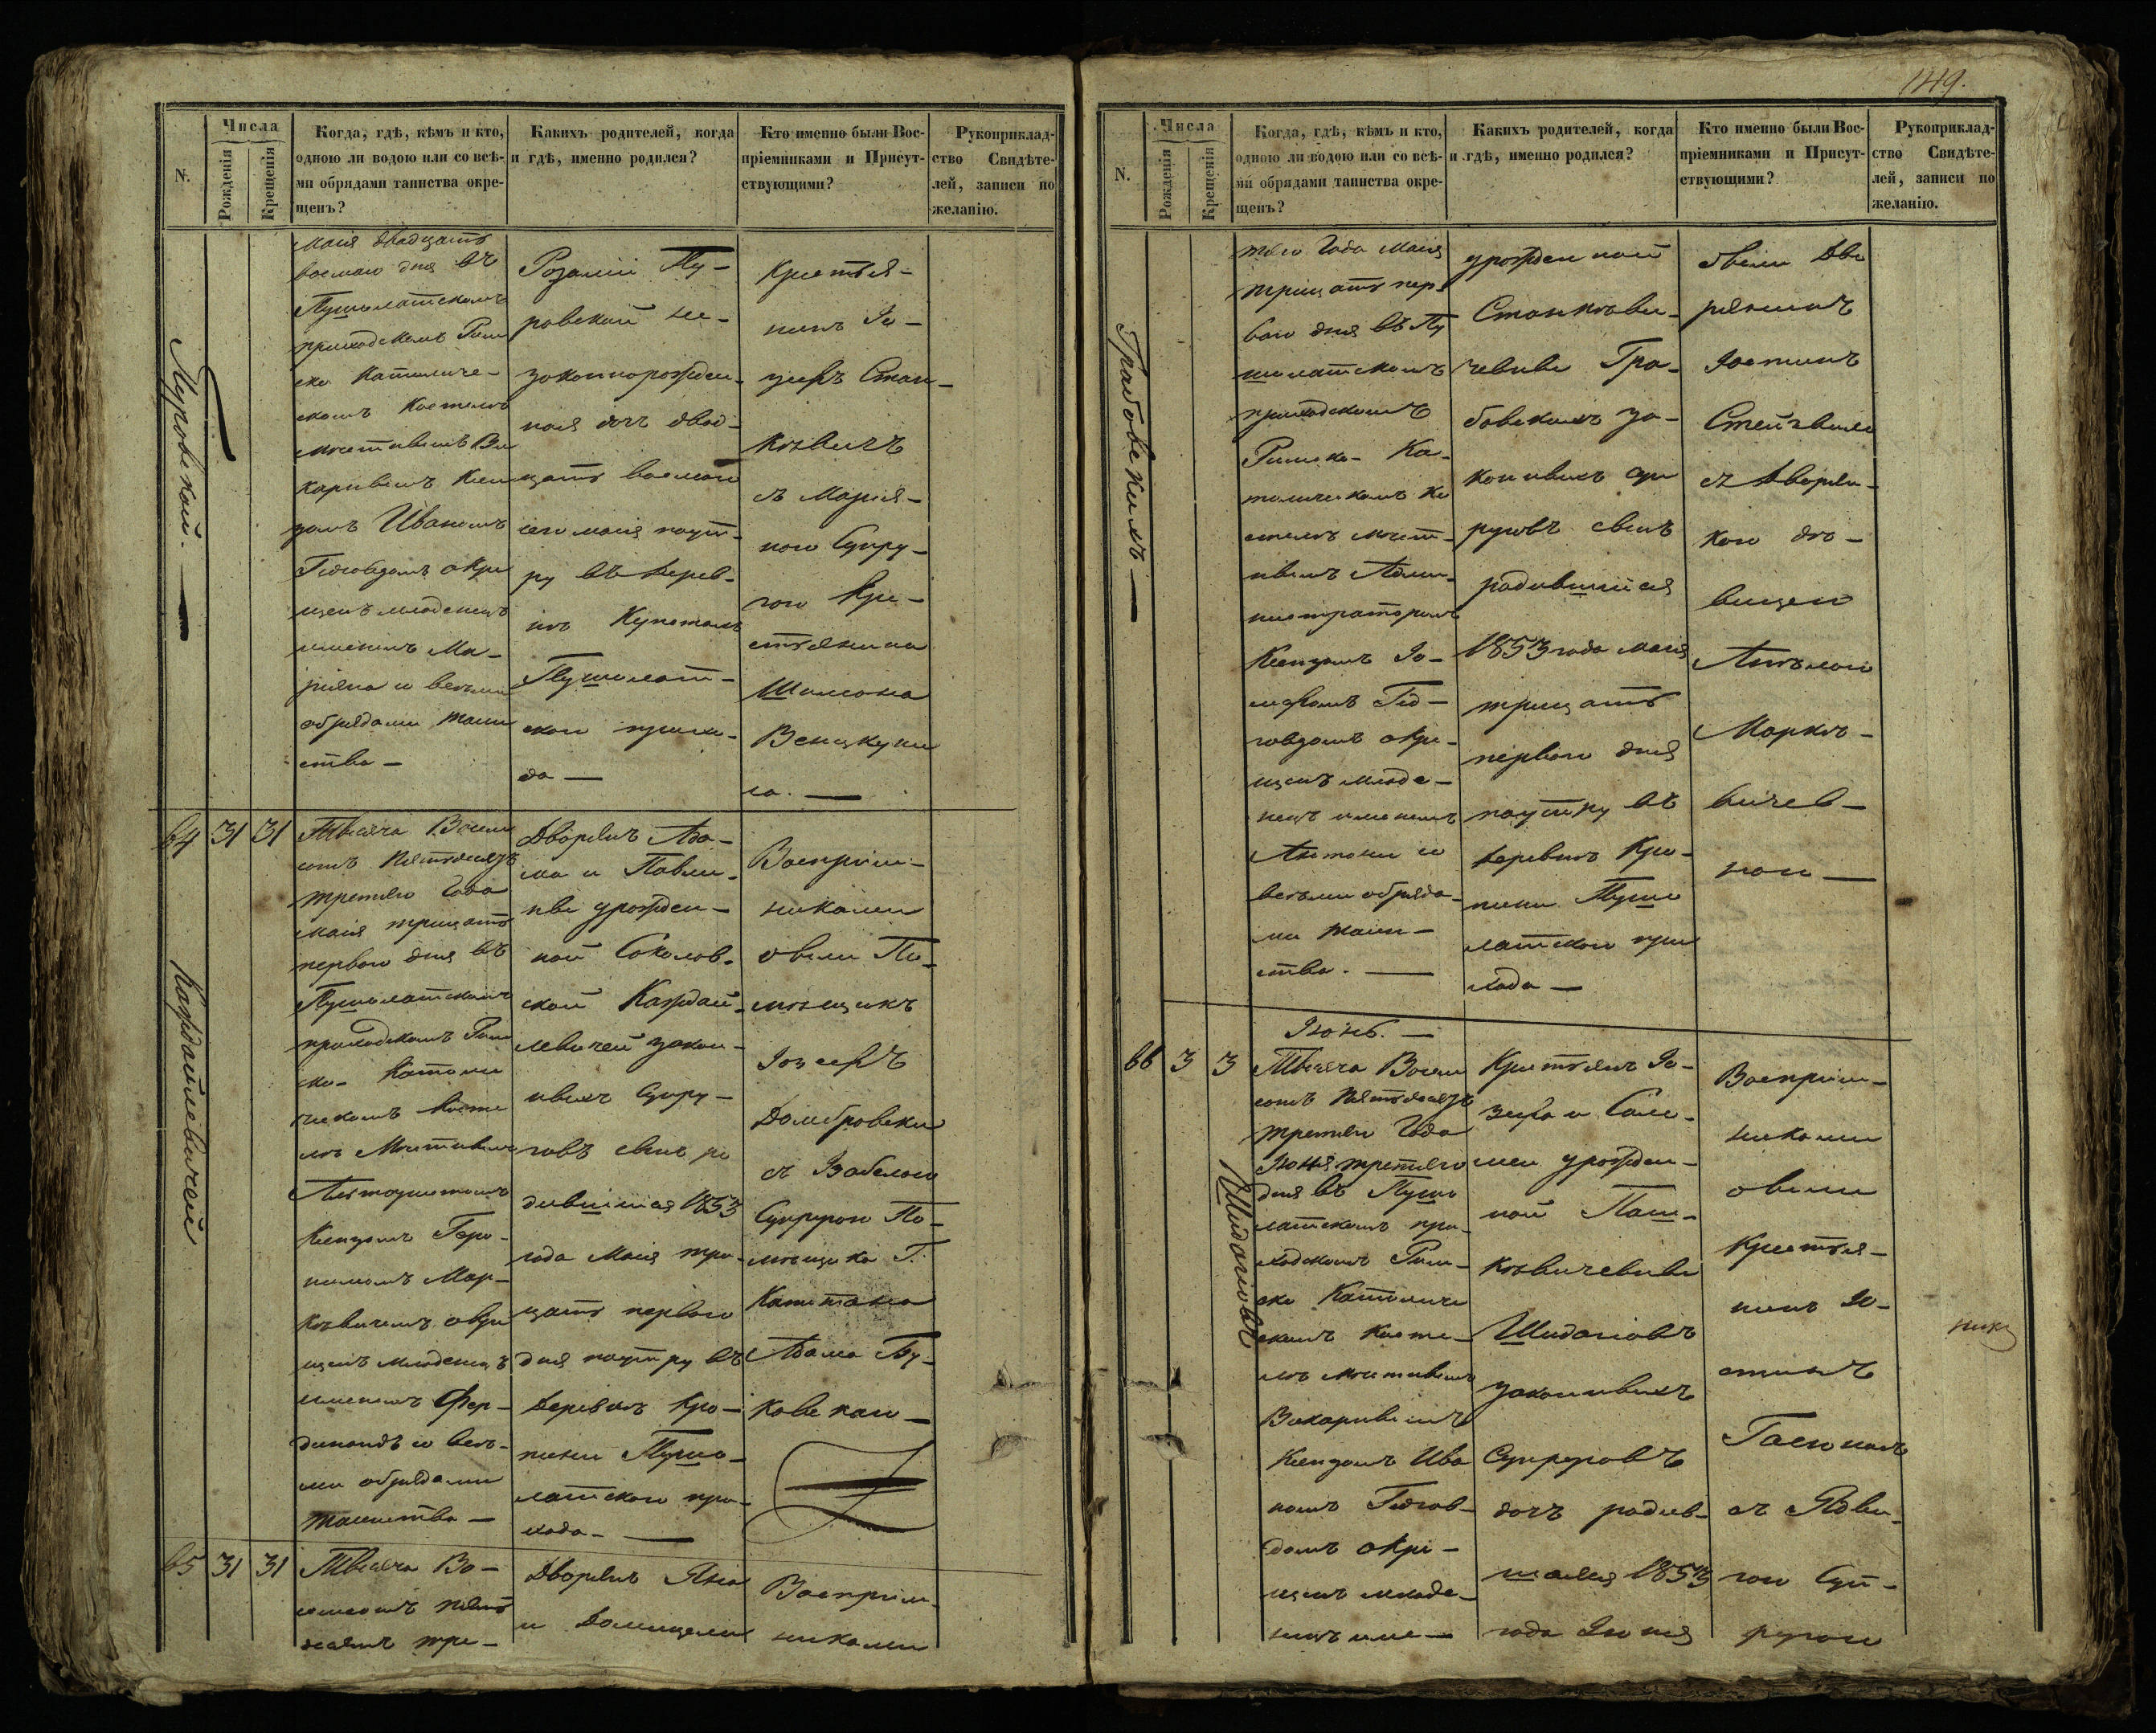 N.
Числа
Рожденія
Крещенія
Когда, гдѣ, кѣмъ и кто,
одною ли водою или со всѣ-
ми обрядами таинства окре-
щенъ?
Какихъ родителей, когда
и гдѣ, именно родился?
Кто именно были Вос-
пріемниками и Присут-
ствующими?
Рукоприклад-
ство Свидѣте-
лей, записи по
желанію.
Муровской.
Маія двадцать
восмаго дня въ
Пушолатскомъ
приходскомъ Рим
ско Католиче-
скомъ Костелѣ
мѣстнымъ Ви
карнымъ Ксен
дзомъ Иваномъ
окре
щенъ младенецъ
именемъ Ма-
ріяна со всѣми
обрядами таин
ства —
Розаліи Му-
ровской не-
законнорожден-
ная дочь двад-
цать восмаго
сего маія поут-
ру въ дерев-
нѣ
Пушолат-
ской прихо-
да —
Крестья-
нинъ Іо-
зефъ Стан-
кѣвичъ
съ Марія-
ною Супру-
гою Кре-
стьянина
Шимона
Венцкуни
са. —
64 31 31
Кардайлевичей
Тысяча Восем
сотъ Пятьдесятъ
третьяго Года
Маія тридцать
первого дня въ
Пушолатскомъ
приходскомъ Рим
ско- Католи
ческомъ Косте
лѣ Мѣстнымъ
Ксендзомъ Геро-
нимомъ Мар-
кѣвичемъ окре
щенъ младенецъ
именемъ Фер-
динандъ со всѣ-
ми обрядами
таинства —
Дворянъ Ада-
ма и Павли-
ны урожден-
ной Соколов-
ской Кардай-
левичей закон-
ныхъ Супру-
говъ сынъ ро
дившійся 1853
года Маія три-
цать первого
дня поутру въ
Деревнѣ Кро-
пики Пушо-
латского при-
хода. —
Воспріем-
никами
были По-
мѣщикъ
Іозефъ
Домбровски
съ Изабелою
Супругою По-
мѣщика Г.
Капитана
Адама Бу-
ковскаго —
65 31 31
Тысяча Во-
семсотъ пять
десятъ тре-
Дворянъ Яна
и Домицели
Воспріем-
никами
149.
N.
Числа
Рожденія
Крещенія
Когда, гдѣ, кѣмъ и кто,
одною ли водою или со всѣ-
ми обрядами таинства окре-
щенъ?
Какихъ родителей, когда
и гдѣ, именно родился?
Кто именно были Вос-
пріемниками и Присут-
ствующими?
Рукоприклад-
ство Свидѣте-
лей, записи по
желанію.
Грабовскихъ —
тяго Года Маія
трицать пер-
вого дня въ Пу
шолатскомъ
приходскомъ
Римско- Ка-
толическомъ Ко
стелѣ мѣст-
нымъ Адми-
нистраторомъ
Ксендзомъ Іо-
окре-
щенъ младе-
нецъ именемъ
Антони со
всѣми обряда-
ми таин-
ства. —
урожденной
Станкѣви-
чевны Гра-
бовскихъ за-
конныхъ су
руговъ сынъ
родившійся
1853 года маія
трицать
первого дня
поутру въ
деревнѣ Кро-
пики Пушо
латского при
хода —
были Дво
рянинъ
Іостинъ
съ Дворян-
кою дѣ-
вицею
Маркѣ-
вичев-
ною —
Іюнь. —
66 3 3
Шидагіовъ
Тысяча Восем
сотъ Пятьдесятъ
третьяго Года
Іюня третьяго
дня въ Пушо
латскомъ при-
ходскомъ Рим-
ско Католиче
скомъ Косте-
лѣ мѣстнымъ
Викарнымъ
Ксендзомъ Ива
номъ
окре-
щенъ младе-
нецъ име-
Крестьянъ Іо-
зефа и Сало-
меи урожден-
ной Паш-
кѣвичевны
Шидагіовъ
законныхъ
Супруговъ
дочь родив-
шаяся 1853
года Іюня
Воспріем-
никами
были
Крестья-
нинъ Ю-
стинъ
съ Ядви-
гою Суп-
ругою